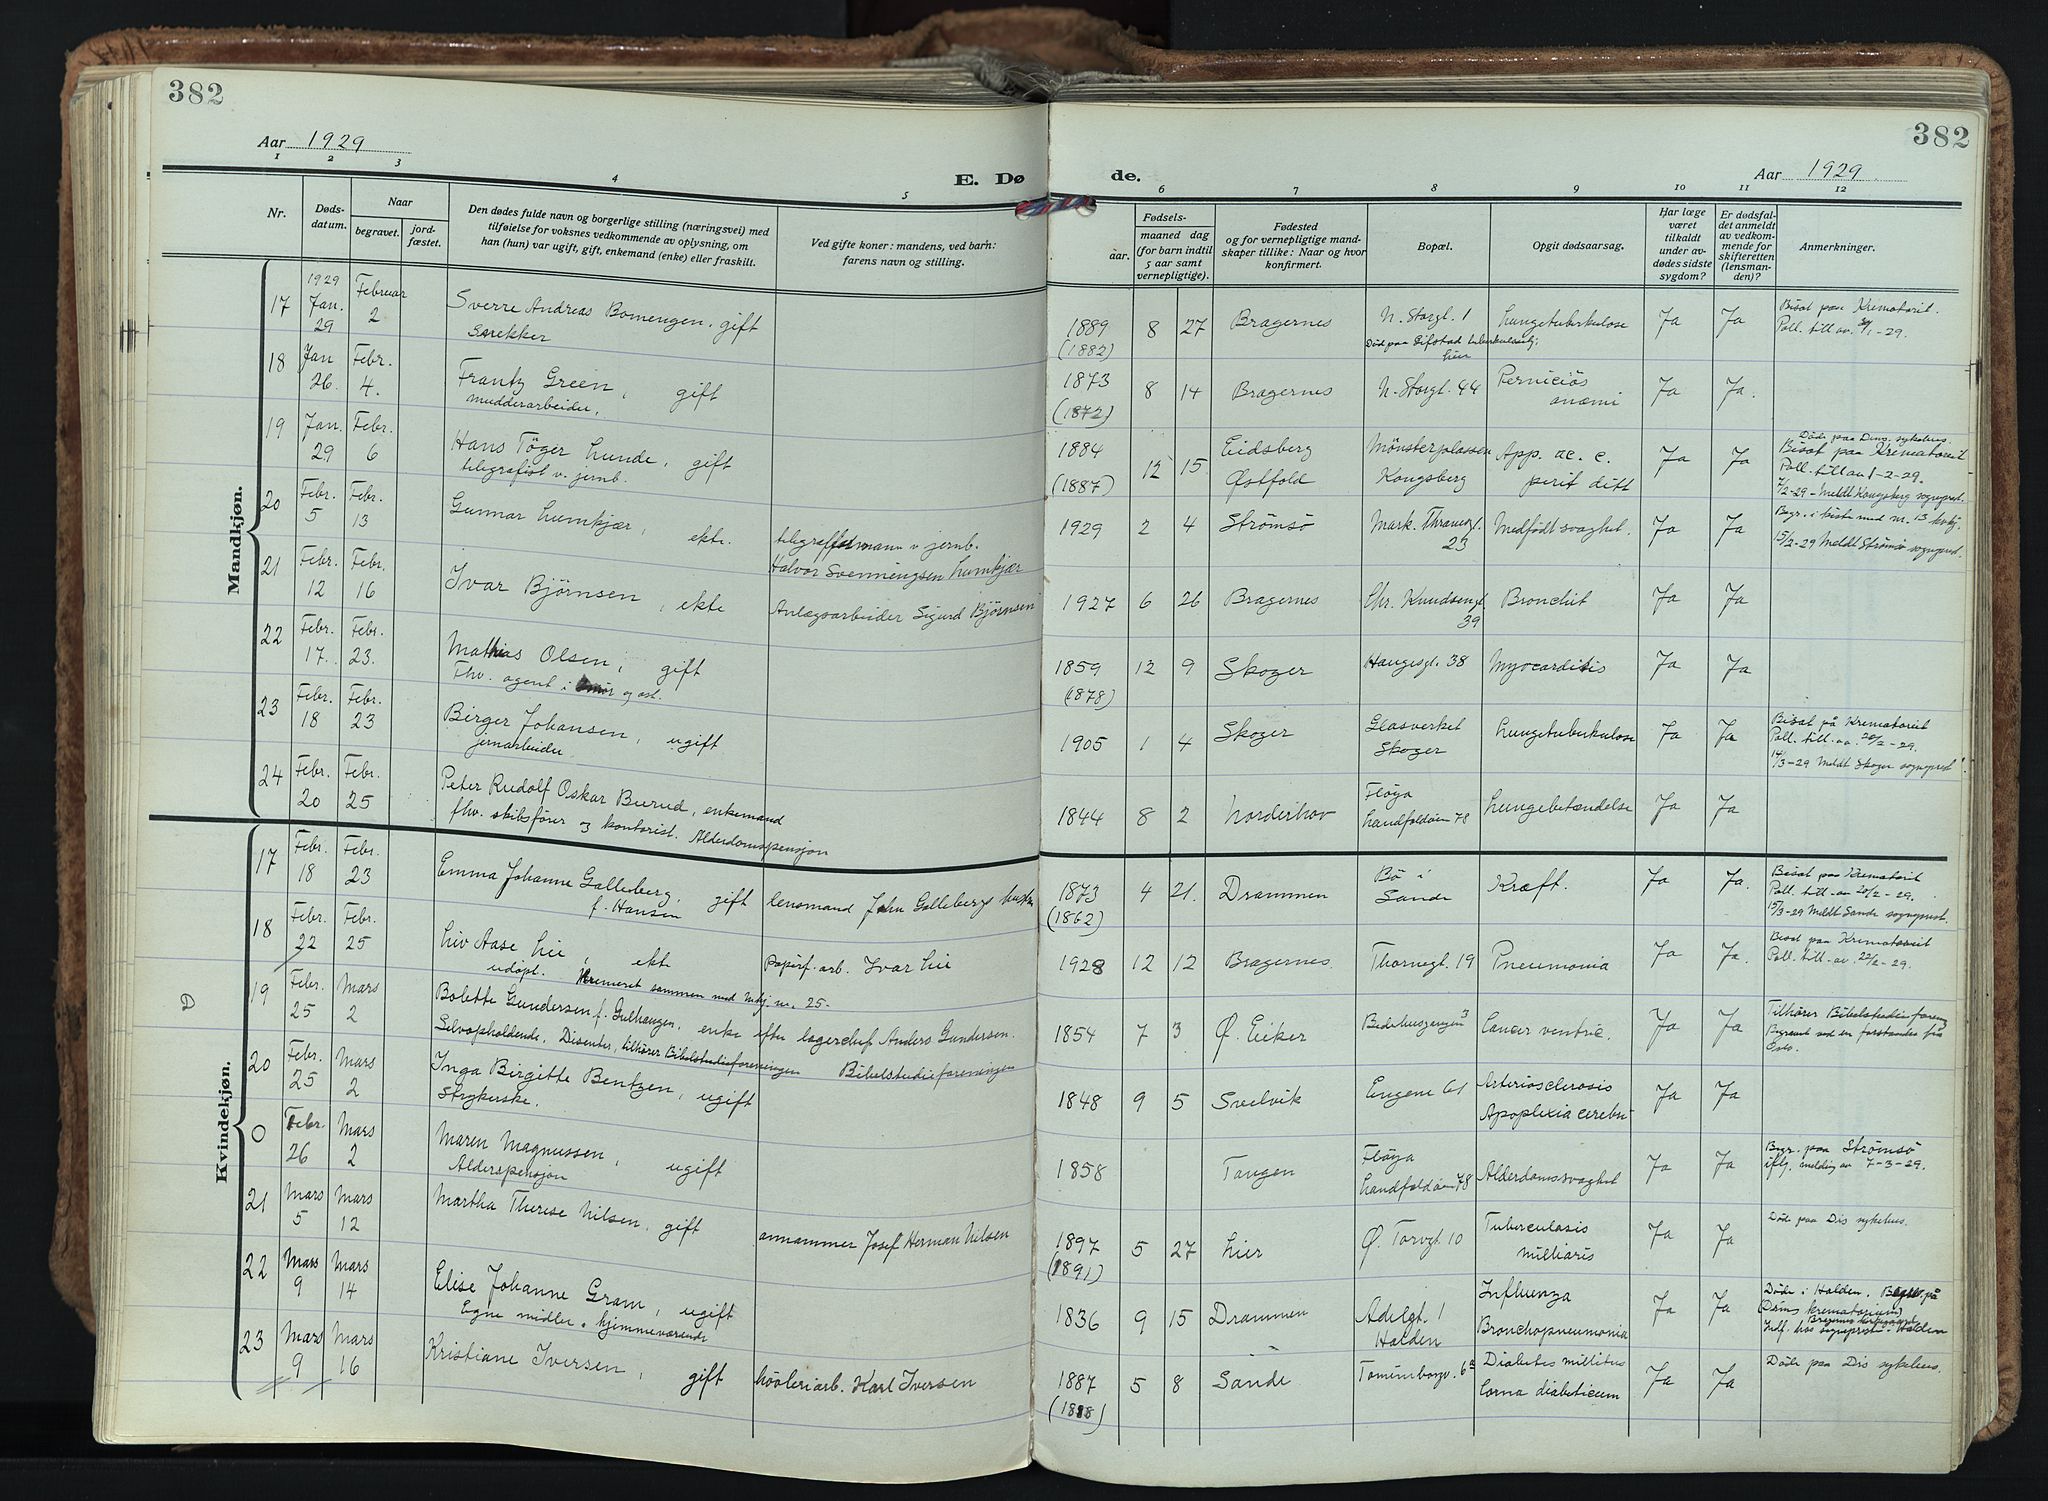 382
382
Aar 1929
E. Dø
de.
Aar 1929
1 2 3 4 5 6 7 8 9 10 11 12
Nr.
Døds-
datum.
Naar
begravet.
jord-
fæstet.
Den dødes fulde navn og borgerlige stilling (næringsvei) med
tilføielse for voksnes vedkommende av oplysning, om
han (hun) var ugift, gift, enkemand (enke) eller fraskilt.
Ved gifte koner: mandens, ved barn:
farens navn og stilling.
Fødsels-
aar.
maaned dag
(for barn indtil
5 aar samt
vernepligtige).
Fødested
og for vernepligtige mand-
skaper tillike: Naar og hvor
konfirmert.
Bopæl.
Opgit dødsaarsag.
Har læge
været
tilkaldt
under av-
dødes sidste
sygdom?
Er dødsfal-
det anmeldt
av vedkom-
mende for
skifteretten
(lensman-
den)?
Anmerkninger.
Mandkjøn.
17 1929 Jan. 29 Februar 2 Sverre Andreas Bomengen, gift
1889 (1882) 8 27 Bragernes N. Storgt. 1 Lungetuberkulose Ja Ja Bisat paa Krematoriet.
18 Jan 26. Febr. 4. Frantz Green, gift
mudderarbeider,
1873 (1872) 8 14 Bragernes N. Storgt. 44 Perniciøs anæmi Ja Ja.
19 Jan. 29 Febr. 6 Hans Tøger Lunde, gift
telegrafist v. jernb.
1884 (1887) 12 15 Eidsberg Østfold Mønsterplassen Kongsberg App. ac. c. perit ditt Ja Ja Døde paa Dms. sykehus.
Bisat paa Krematoriet
Poll. till av 1-2-29.
7/2-29 - Meldt Kongsberg sogneprest.
20 Febr. 5 Febr. 13 Gunnar Lumkjær, ekte. telegrafformann v jernb.
Halvor Svenningsen Lumkjær
1929 2 4 Strømsø Mark. Thranesgt. 23 Medfødt svaghet. Ja Ja Begr. i kiste med nr. 13 kvkj.
15/2-29 Meldt Strømsø sogneprest.
21 Febr. 12 Febr. 16 Ivar Bjørnsen, ekte Anlegsarbeider Sigurd Bjørnsen
1927 6 26 Bragernes Chr. Knudsensgt. 39 Bronchit Ja Ja
22 Febr. 17. Febr. 23. Mathias Olsen, gift
Fhv. agent i smør og ost.
1859 (1878) 12 9 Skoger Haugesgt. 38 Myocarditis Ja Ja
23 Febr. 18 Febr. 23 Birger Johansen, ugift
jernarbeider
1905 1 4 Skoger Glasverket Skoger Lungetuberkulose Ja Ja Bisat på Krematoriet
Poll. till. av. 20/2-29.
14/3-29 Meldt Skoger sogneprest.
24 Febr. 20 Febr. 25 Peter Rudolf Oskar Burud, enkemand
fhv. skibsfører og kontorist. Alderdomspensjon
1844 8 2 Norderhov Fløya Landfaldøien 78 Lungebetændelse Ja Ja
Kvindekjøn.
17 Febr. 18 Febr. 23 Emma Johanne Galleberg, gift
f. Hansen
lensmand John Gallebergs hustru
1873 (1862) 4 21. Drammen Bø i Sande Kræft. Ja Ja. Bisat paa Krematoriet
Poll. till. av 20/2-29.
15/3-29 Meldt Sande sogneprest.
18 Febr. 22 Febr. 25 Liv Aase Lie, ekte Papirf. arb. Ivar Lie
udøpt. Kremeret sammen med Mkj. nr. 25.
1928 12 12 Bragernes. Thornegt. 19 Pneumonia Ja Ja. Bisat paa Krematoriet
Poll. till. av. 22/2-29.
D
19 Febr. 25 Mars 2 Bolette Gundersen f. Gulhaugen, enke efter lagerchef Anders Gundersen.
Selvopholdende. Disenter, tilhører Bibelstudieforeningen Bibelstudieforeningen
1854 7 3 Ø. Eiker Bedehusgangen 3 Cancer ventric. Ja Ja Tilhører Bibelstudieforening
Begravet ved en forstander fra
Oslo.
20 Febr. 25 Mars 2 Inga Birgitte Bentzen, ugift
Strykerske.
1848 9 5 Svelvik Engene 61 Arteriosclerosis
Apoplexia cerebri Ja Ja
0 Febr. 26 Mars 2 Maren Magnussen, ugift
Alderspensjon
1858 Tangen Fløya Landfaldøien 78 Alderdomssvaghet Ja Ja Begr. paa Strømsø
iflg. melding av 7-3-29.
21 Mars 5 Mars 12 Martha Therese Nilsen, gift annammer Josef Herman Nilsen
1897 (1891) 5 27 Lier Ø. Torvgt. 10 Tuberculosis milliaris Ja Ja Døde paa Dis sykehus.
22 Mars 9 Mars 14 Elise Johanne Gram, ugift
Egne midler. hjemmeværende
1836 9 15 Drammen Adelgt. 1 Halden Influenza
Bronchopneumonia Ja Ja Døde i Halden. på
(Dams krematorium)
Indf. hos sogneprest i Halden
23 Mars 9 Mars 16 Kristiane Iversen, gift høvleriarb. Karl Iversen
1887 (1888) 5 8 Sande 6a Diabetes millitus
Coma diabeticum Ja Ja Døde paa Dis sykehus.